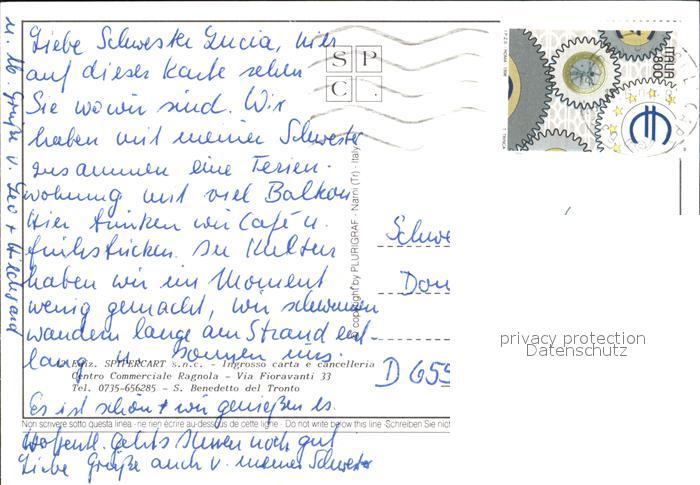 Liebe Schwester Lucia, hier
auf dieser Karte sehen
Sie wo wir sind. Wir
haben mit meiner Schwester
zusammen eine Ferien-
wohnung mit viel Balkon
Hier trinken wir Café u.
frühstücken. In Kultur
haben wir im Moment
wenig gemacht, wir schwimmen
wandern lange am Strand ent-
lang u. sonnen uns.
Es ist schön + wir genießen es.
Hoffentl. gehts Ihnen noch gut
Liebe Grüße auch v. meiner Schwester
u. lb. Grüße v. Leo + Hildegard
S P
C .
© copyright by PLURIGRAF - Narni (Tr) - Italy
Ediz. SUPERCART s.n.c. - Ingrosso carta e cancelleria
Centro Commerciale Ragnola - Via Fioravanti 33
Tel. 0735-656285 - S. Benedetto del Tronto
Non scrivere sotto questa linea - ne rien écrire au-dessous de cette ligne - Do not write below this line - Schreiben Sie nich
Schwe
Don
D 655
ITALIA
800
privacy protection
Datenschutz